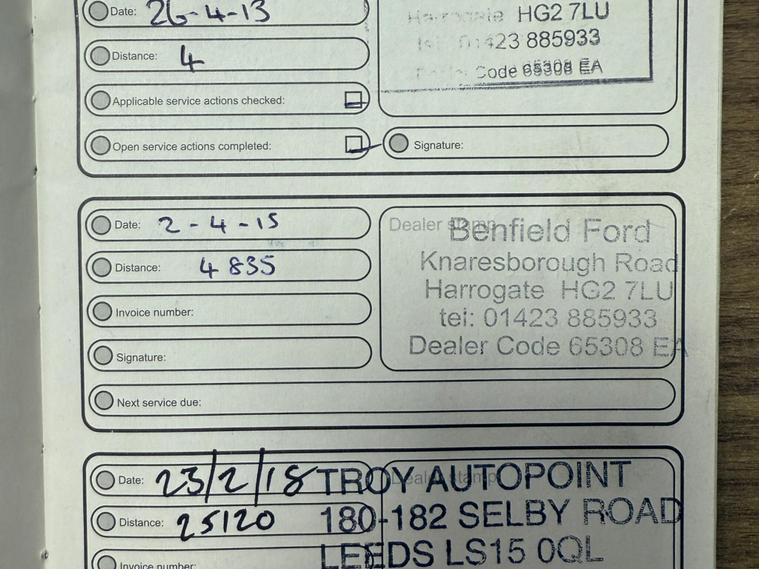 Date: 26-4-13
Harrogate HG2 7LU
Distance: 4
tel: 01423 885933
Code 65308 EA
Applicable service actions checked:
Open service actions completed:
Signature:
Date: 2-4-15
Dealer stamp
Benfield Ford
Distance: 4835
Knaresborough Road
Harrogate HG2 7LU
Invoice number:
tel: 01423 885933
Signature:
Dealer Code 65308 EA
Next service due:
Date: 23/2/18
Dealer stamp
TROY AUTOPOINT
Distance: 25120
180-182 SELBY ROAD
Invoice number:
LEEDS LS15 0QL